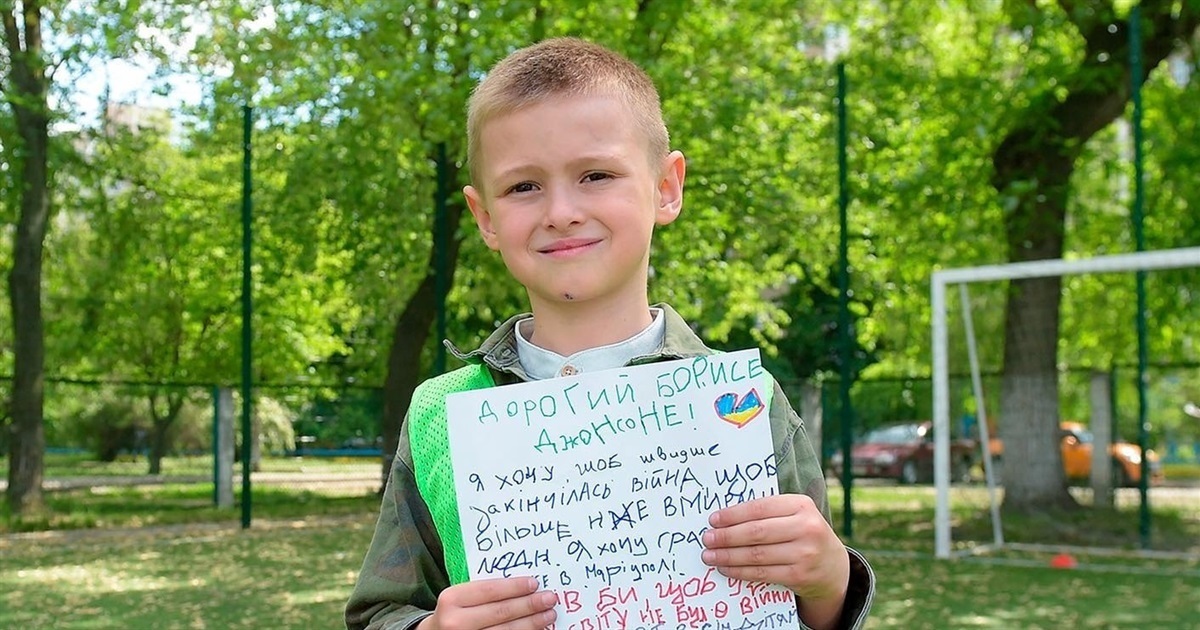 ДОРОГИЙ БОРИСЕ
ДЖОНСОНЕ!
Я ХОЧУ, ЩОБ ШВИДШЕ
ЗАКІНЧІЛАСЬ ВІЙНА, ЩОБ
БІЛЬШЕ НЕ ВМИРАЛИ
ЛЮДИ. Я ХОЧУ
В МАРІУПОЛІ.
В БИ, ЩОБ У
СВІТУ НЕ БУЛО ВІЙНИ